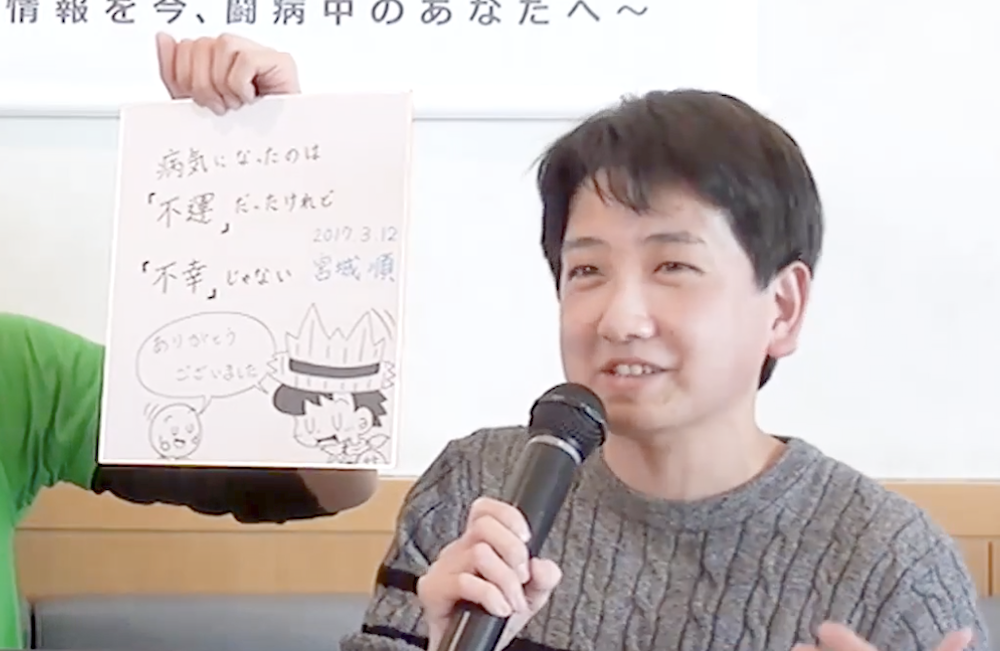 情報を今、闘病中のあなたへ～
病気になったのは
「不運」だったけれど
2017.3.12
「不幸」じゃない
宮城 順
ありがとう
ございました